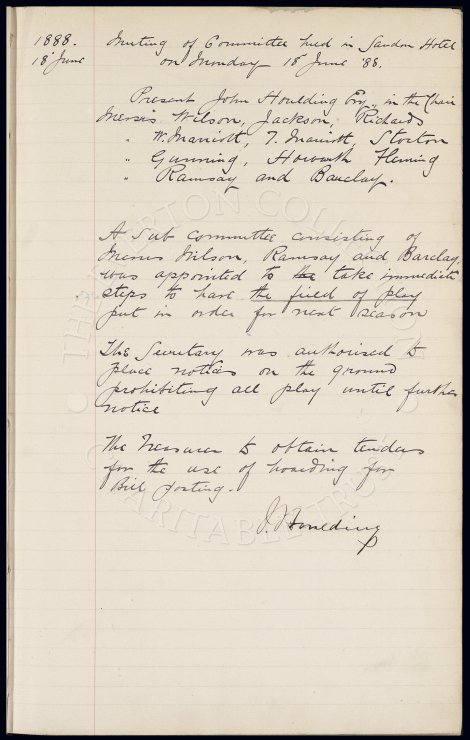 1888. Meeting of Committee held in Sandon Hotel
18 June on Monday 18 June '88.
Present John Houlding Esq., in the Chair
Messrs Wilson, Jackson, Richards
" W. Marriott, T. Marriott, Storton
" Gunning, Howarth Fleming
" Ramsay and Barclay.
A Sub Committee consisting of
Messrs Wilson, Ramsay and Barclay,
was appointed to the take immediate
steps to have the field of play
put in order for next season
The Secretary was authorised to
place notices on the ground
prohibiting all play until further
notice
The Treasurer to obtain tenders
for the use of hoarding for
Bill posting.
J. Houlding
THE EVERTON COLLECTION
CHARITABLE TRUST